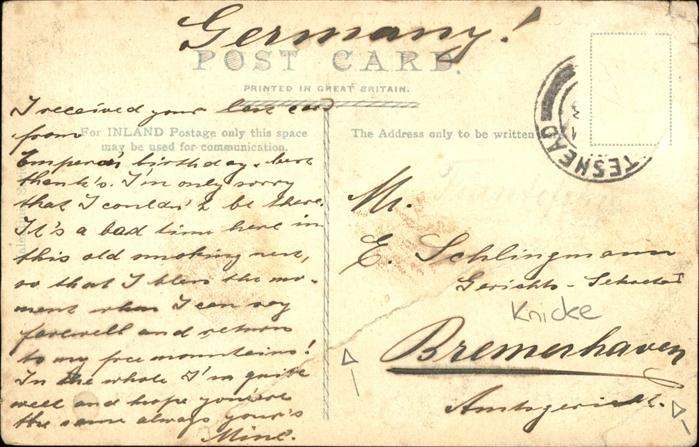 Germany!
POST CARD.
PRINTED IN GREAT BRITAIN.
For INLAND Postage only this space
may be used for communication.
The Address only to be written
TESHEAD
I received your last card
from
Emperor's birthday. best
thank's. I'm only sorry
that I couldn't be there.
It's a bad time here in
this old smoking nest,
so that I bless the mo-
ment when I can say
farewell and return
to my free mountains!
In the whole I'm quite
well and hope you're
the same always your's
Mr.
E. Schlingmann
Gerichts-Sekretär
Knicke
Bremerhaven
Amtsgericht.